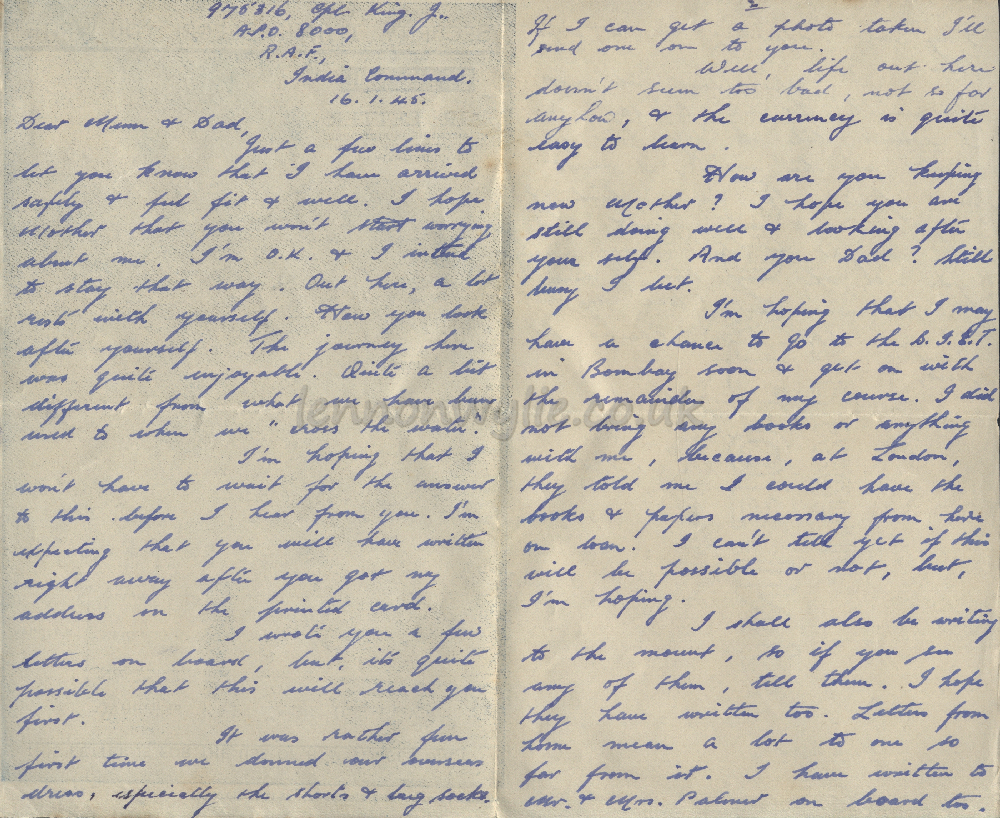 975316, Cpl. King. J.,
A.P.O. 8000,
R.A.F.,
India Command.
16.1.45.
Dear Mum & Dad,
Just a few lines to
let you know that I have arrived
safely & feel fit & well. I hope
Mother that you won't start worrying
about me. I'm O.K. & I intend
to stay that way. Out here, a lot
rests with yourself. How you look
after yourself. The journey here
was quite enjoyable. Quite a bit
different from what we have been
used to when we "cross the water."
I'm hoping that I
won't have to wait for the answer
to this before I hear from you. I'm
expecting that you will have written
right away after you got my
address on the printed card.
I wrote you a few
letters on board, but, it's quite
possible that this will reach you
first.
It was rather fun
first time we donned our overseas
dress, especially the shorts & long socks.
2
If I can get a photo taken I'll
send one on to you.
Well, life out here
doesn't seem too bad, not so far
anyhow, & the currency is quite
easy to learn.
How are you keeping
now Mother? I hope you are
still doing well & looking after
your self. And you Dad? Still
busy I bet.
I'm hoping that I may
have a chance to go to the B.I.E.T.
in Bombay soon & get on with
the remainder of my course. I did
not bring any books or anything
with me, because, at London,
they told me I could have the
books & papers necessary from here
on loan. I can't tell yet if this
will be possible or not, but,
I'm hoping.
I shall also be writing
to the mount, so if you see
any of them, tell them. I hope
they have written too. Letters from
home mean a lot to one so
far from it. I have written to
Mr. & Mrs. Palmer on board too.
lennonwylie.co.uk